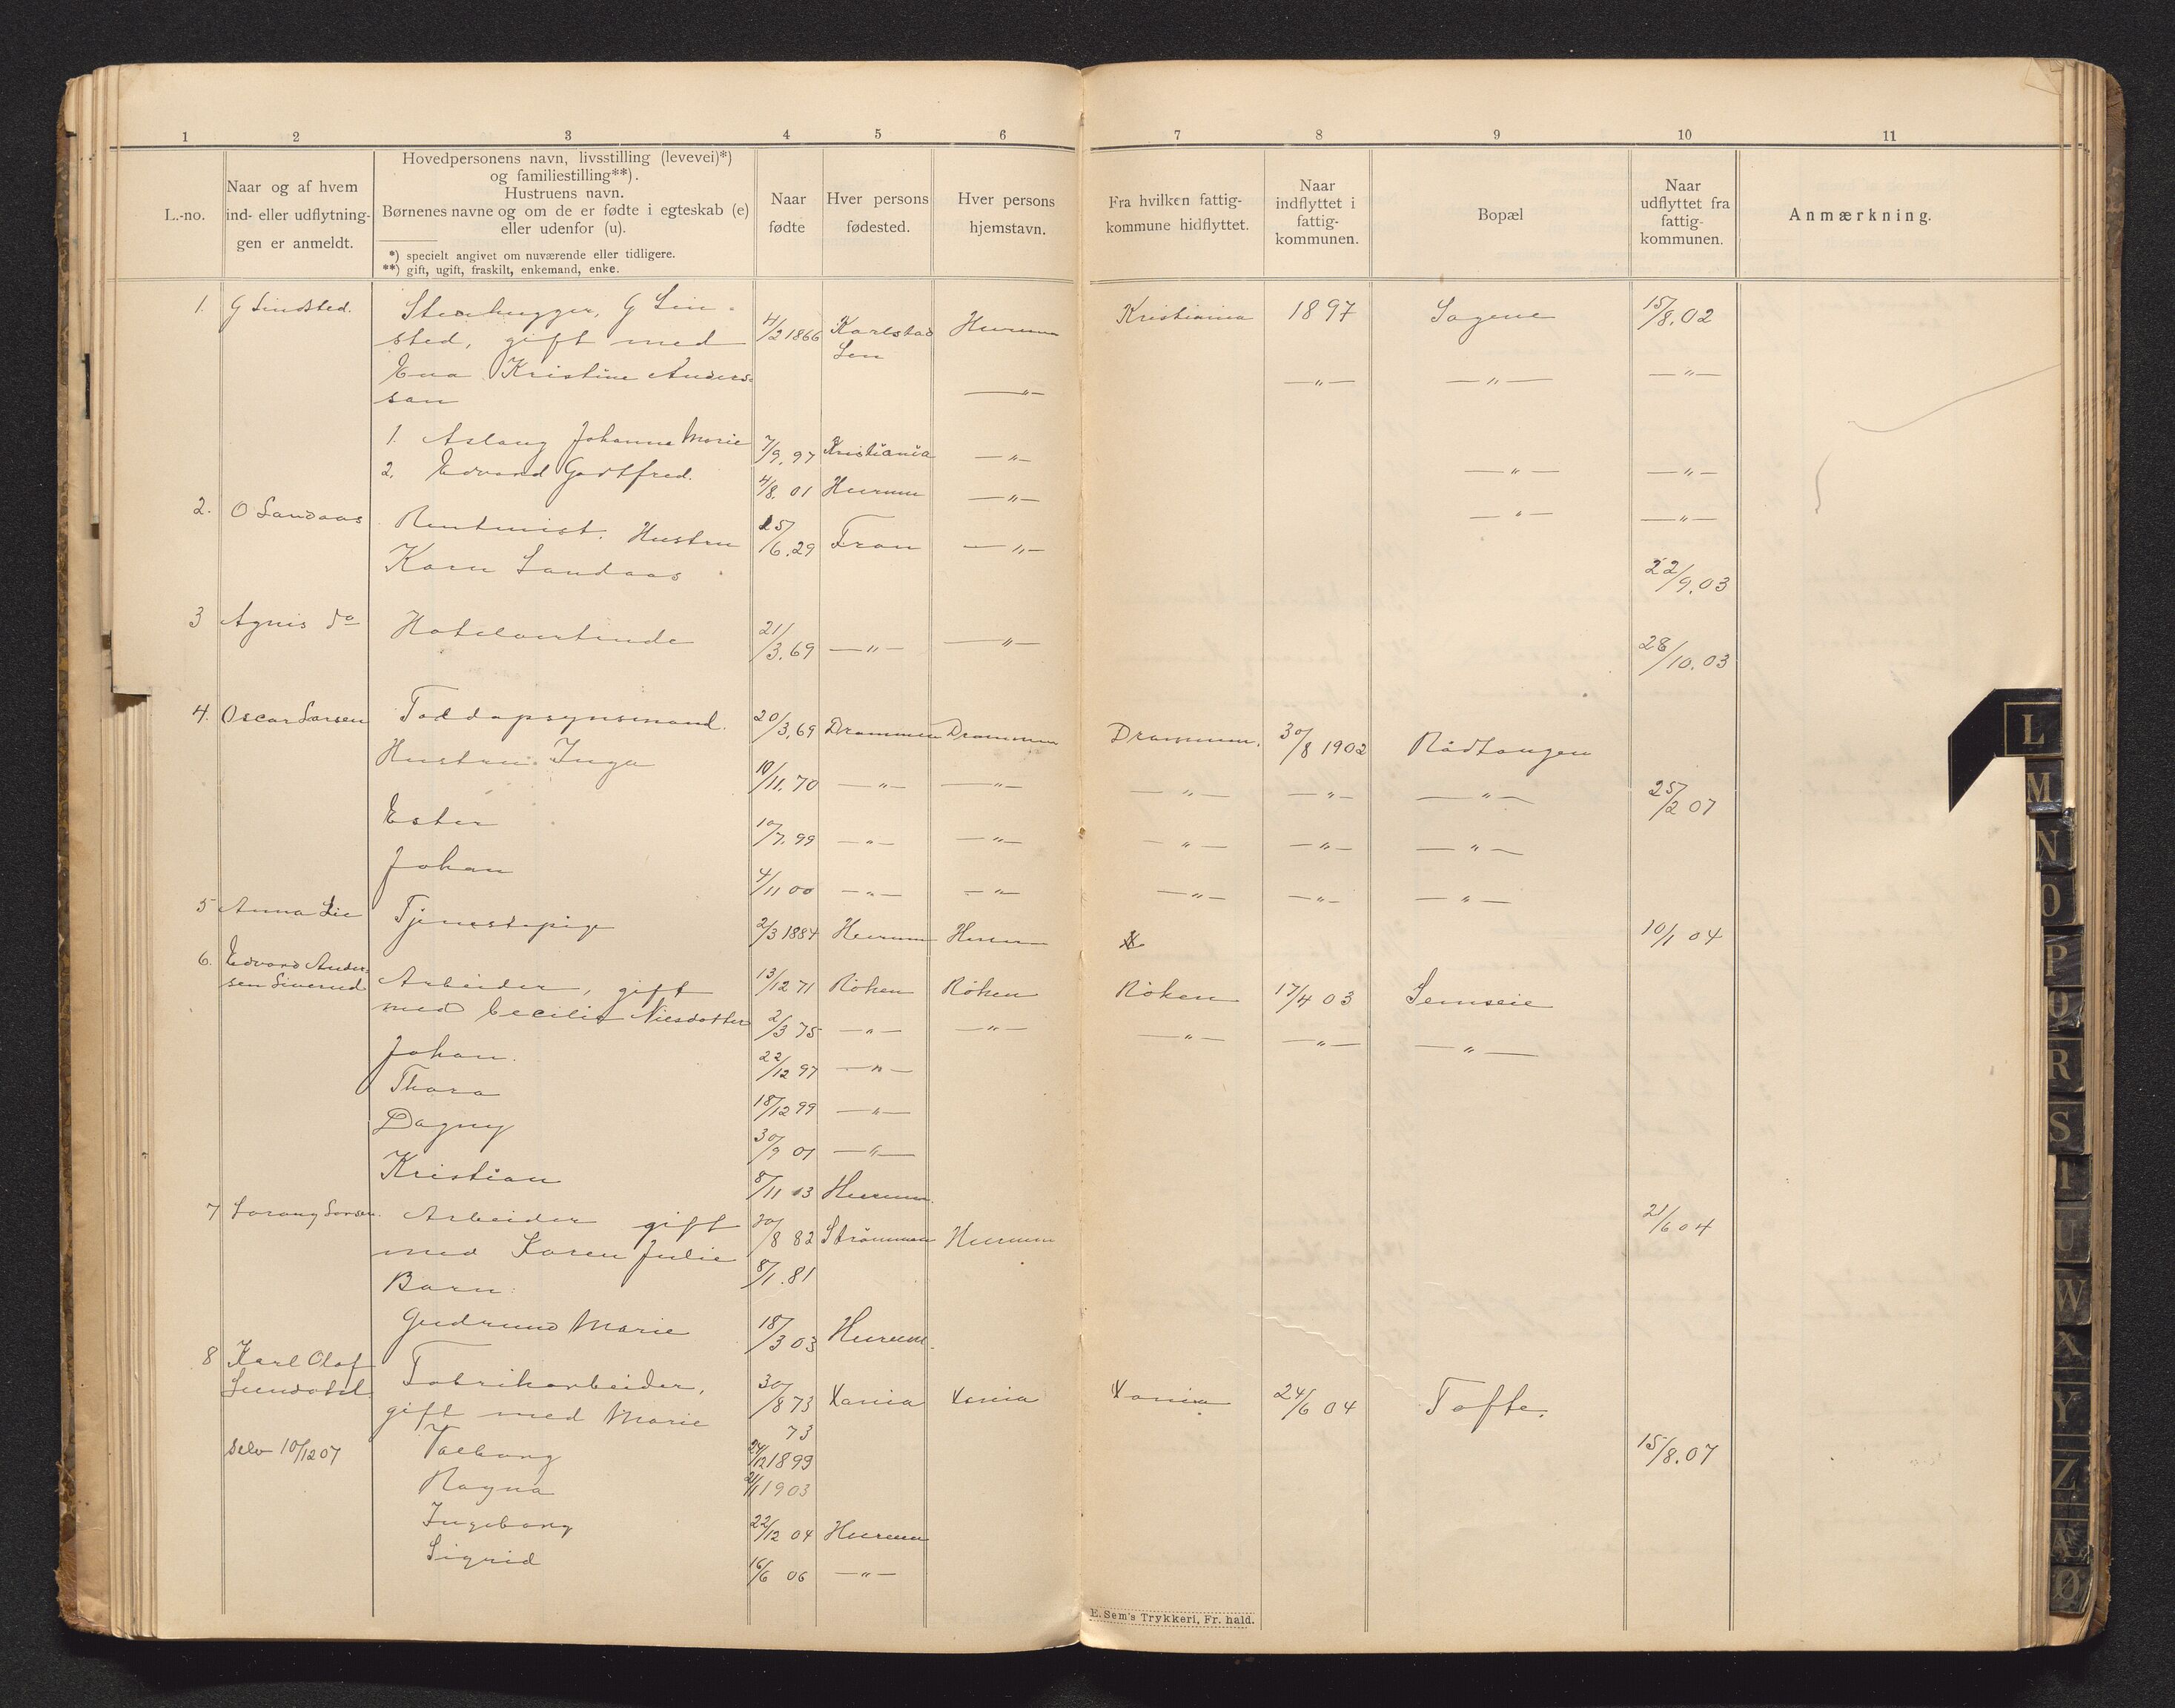 1 2 3 4 5 6 7 8 9 10 11
L.-no.
Naar og af hvem
ind- eller udflytnin-
gen er anmeldt.
Hovedpersonens navn, livsstilling (levevei)*)
og familiestilling**).
Hustruens navn.
Børnenes navne og om de er fødte i egteskab (e)
eller udenfor (u).
*) specielt angivet om nuværende eller tidligere.
**) gift, ugift, fraskilt, enkemand, enke.
Naar
fødte
Hver persons
fødested.
Hver persons
hjemstavn.
Fra hvilken fattig-
kommune hidflyttet.
Naar
indflyttet i
fattig-
kommunen.
Bopæl
Naar
udflyttet fra
fattig-
kommunen.
Anmærkning.
1. G Lindsted. Stenhugger, G Lin- 4/2 1866 Karlstad Hurum Kristiania 1897 Sagene 15/8.02
sted, gift med Len
Eva Kristine Anders- —"— —"— —"— —"—
son
1. Aslaug Johanne Marie 7/9.97 Kristiania —"— —"— —"—
2. Edvard Godtfred. 4/8.01 Hurum —"— —"— —"—
2. O Landaas Rentenist. Hustru 25/6.29 Fron —"—
Karn Landaas 22/9.03
3 Agnis do Hotelvertinde 21/3.69 —"— —"— 28/10.03
4. Oscar Larsen Toldopsynsmand. 20/3.69 Drammen Drammen Drammen. 30/8 1902 Rødtangen
Hustru: Inga 10/11.70 —"— —"— —"— —"— —"— 25/2 07
Ester 10/7.99 —"— —"— —"— —"— —"—
Johan 4/11 00 —"— —"— —"— —"— —"—
5 Anna Lie Tjenestepige 2/3 1884 Hurum Hurum 10/1 04
6. Edvard Ander-
sen Liverud Arbeider, gift 13/12 71 Röken Röken Röken 17/4 03 Semseie
med Cecilie Nilsdotter 2/3 75 —"— —"— —"— —"— —"—
Johan. 22/12 97 —"—
Thora 18/12 99 —"—
Dagny 30/9 01 —"—
Kristian 8/11 03 Hurum.
7 Lorang Larsen. Arbeider gift 30/8 82 Strömmen Hurum 21/6 04
med Karen Julie 8/1.81
Barn:
Gudrund Marie 18/3 03 Hurum.
8 Karl Olaf
Lundahl Fabrikarbeider, 30/8 73 Xania Xania Xania 24/6 04 Tofte.
gift med Marie 73
selv 10/12 07 Valborg 24/12 1899 15/8.07
Ragna 21/1 1903
Ingeborg 22/12 04 Hurum
Sigrid 16/6 06 —"—
E. Sem's Trykkeri, Fr. hald.
L
M
N
O
P
Q
R
S
T
U
W
X
Y
Z
Æ
Ø